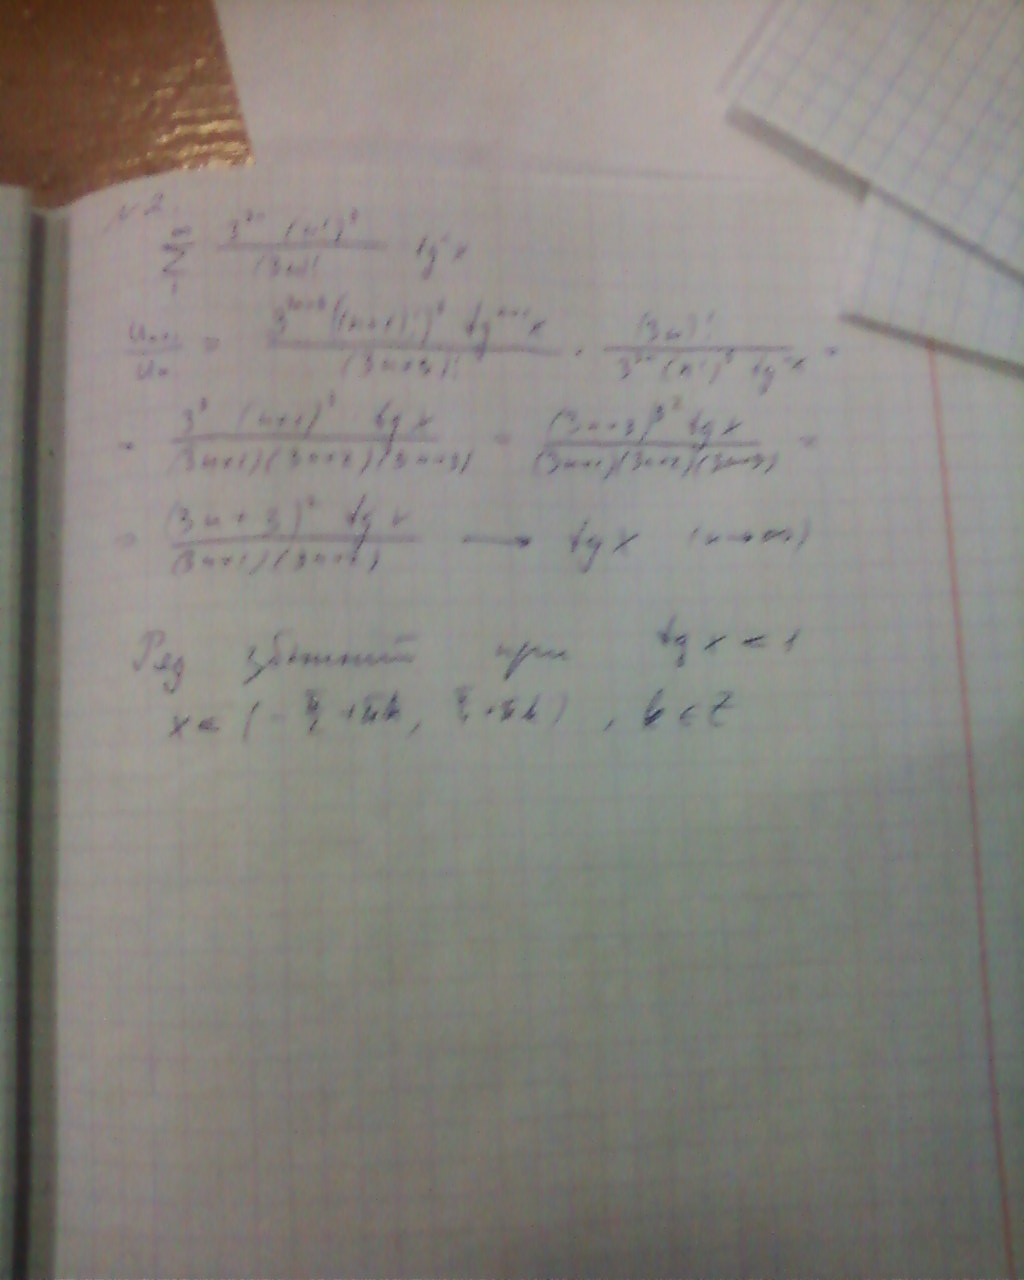 №2
\sum_{1}^{\infty} \frac{3^{3n} (n!)^3}{(3n)!} tg^n x
\frac{u_{n+1}}{u_n} = \frac{3^{3n+3} ((n+1)!)^3 tg^{n+1} x}{(3n+3)!} \cdot \frac{(3n)!}{3^{3n} (n!)^3 tg^n x} =
= \frac{3^3 (n+1)^3 tg x}{(3n+1)(3n+2)(3n+3)} = \frac{(3n+3)^3 tg x}{(3n+1)(3n+2)(3n+3)} =
= \frac{(3n+3)^2 tg x}{(3n+1)(3n+2)} → tg x (n→∞)
Ряд збіжний при tg x < 1
x ∈ (- + πk, + πk), k ∈ Z